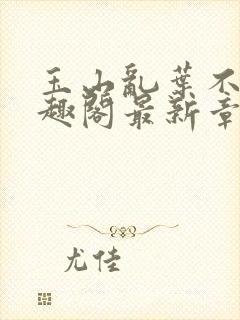 玉山亂葉不
趣閣最新章
尤佳